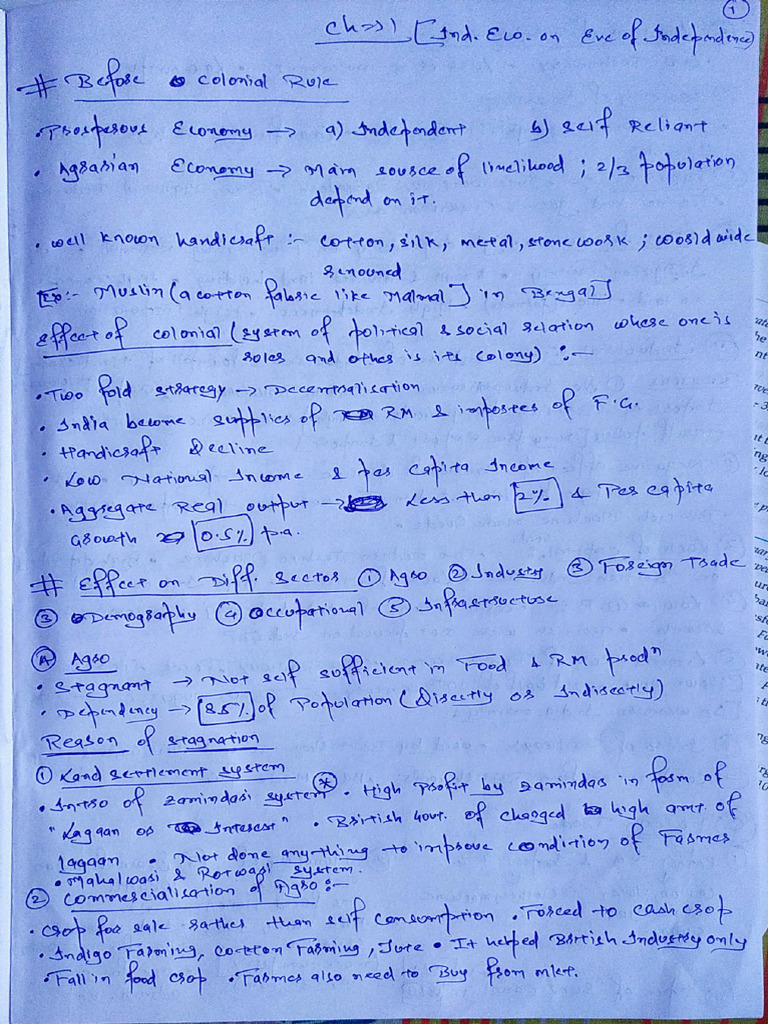 ①
Ch ⇒ 1 [Ind. Eco. on Eve of Independence]
# Before colonial Rule
• Prosperous Economy → a) Independent b) self Reliant
• Agrarian Economy → Main source of livelihood ; 2/3 population
depend on it.
• well known handicraft :- cotton, silk, metal, stone work ; world wide
renouned
Ex:- Muslin (a cotton fabric like Malmal] in Bengal]
effect of colonial (system of political & social relation where one is
roles and other is its colony) :-
• Two fold strategy → Decentralisation
• India become supplies of RM & importers of F.G.
• Handicraft Decline
• Low National Income & per capita Income
• Aggregate Real output → Less than 2% & Per capita
Growth → 0.5% p.a.
# Effect on Diff. Sector ① Agro ② Industry ③ Foreign Trade
③ Demography ④ Occupational ⑤ Infrastructure
Ⓐ Agro
• Stagnant → Not self sufficient in Food & RM prodⁿ
• Dependency → 85% of Population (Directly or Indirectly)
Reason of stagnation
① Land settlement system
• Intro of zamindari system * • High Profit by zamindar in form of
"Lagaan or Interest" • British Govt. of charged high amt. of
lagaan • Not done anything to improve condition of Farmer
• Mahalwari & Rotwari system.
② Commercialisation of Agro :-
• crop for sale rather than self consumption • Forced to cash crop
• Indigo Farming, cotton Farming, Jute • It helped British Industry only
• Fall in food crop • Farmer also need to Buy from mket.